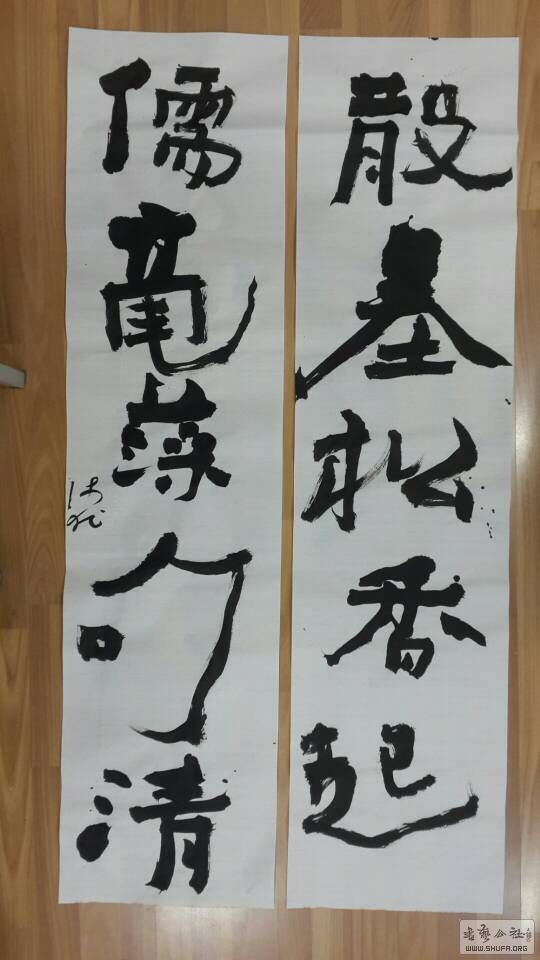 散墨松香起
儒毫藻句清
书艺公社
WWW.SHUFA.ORG